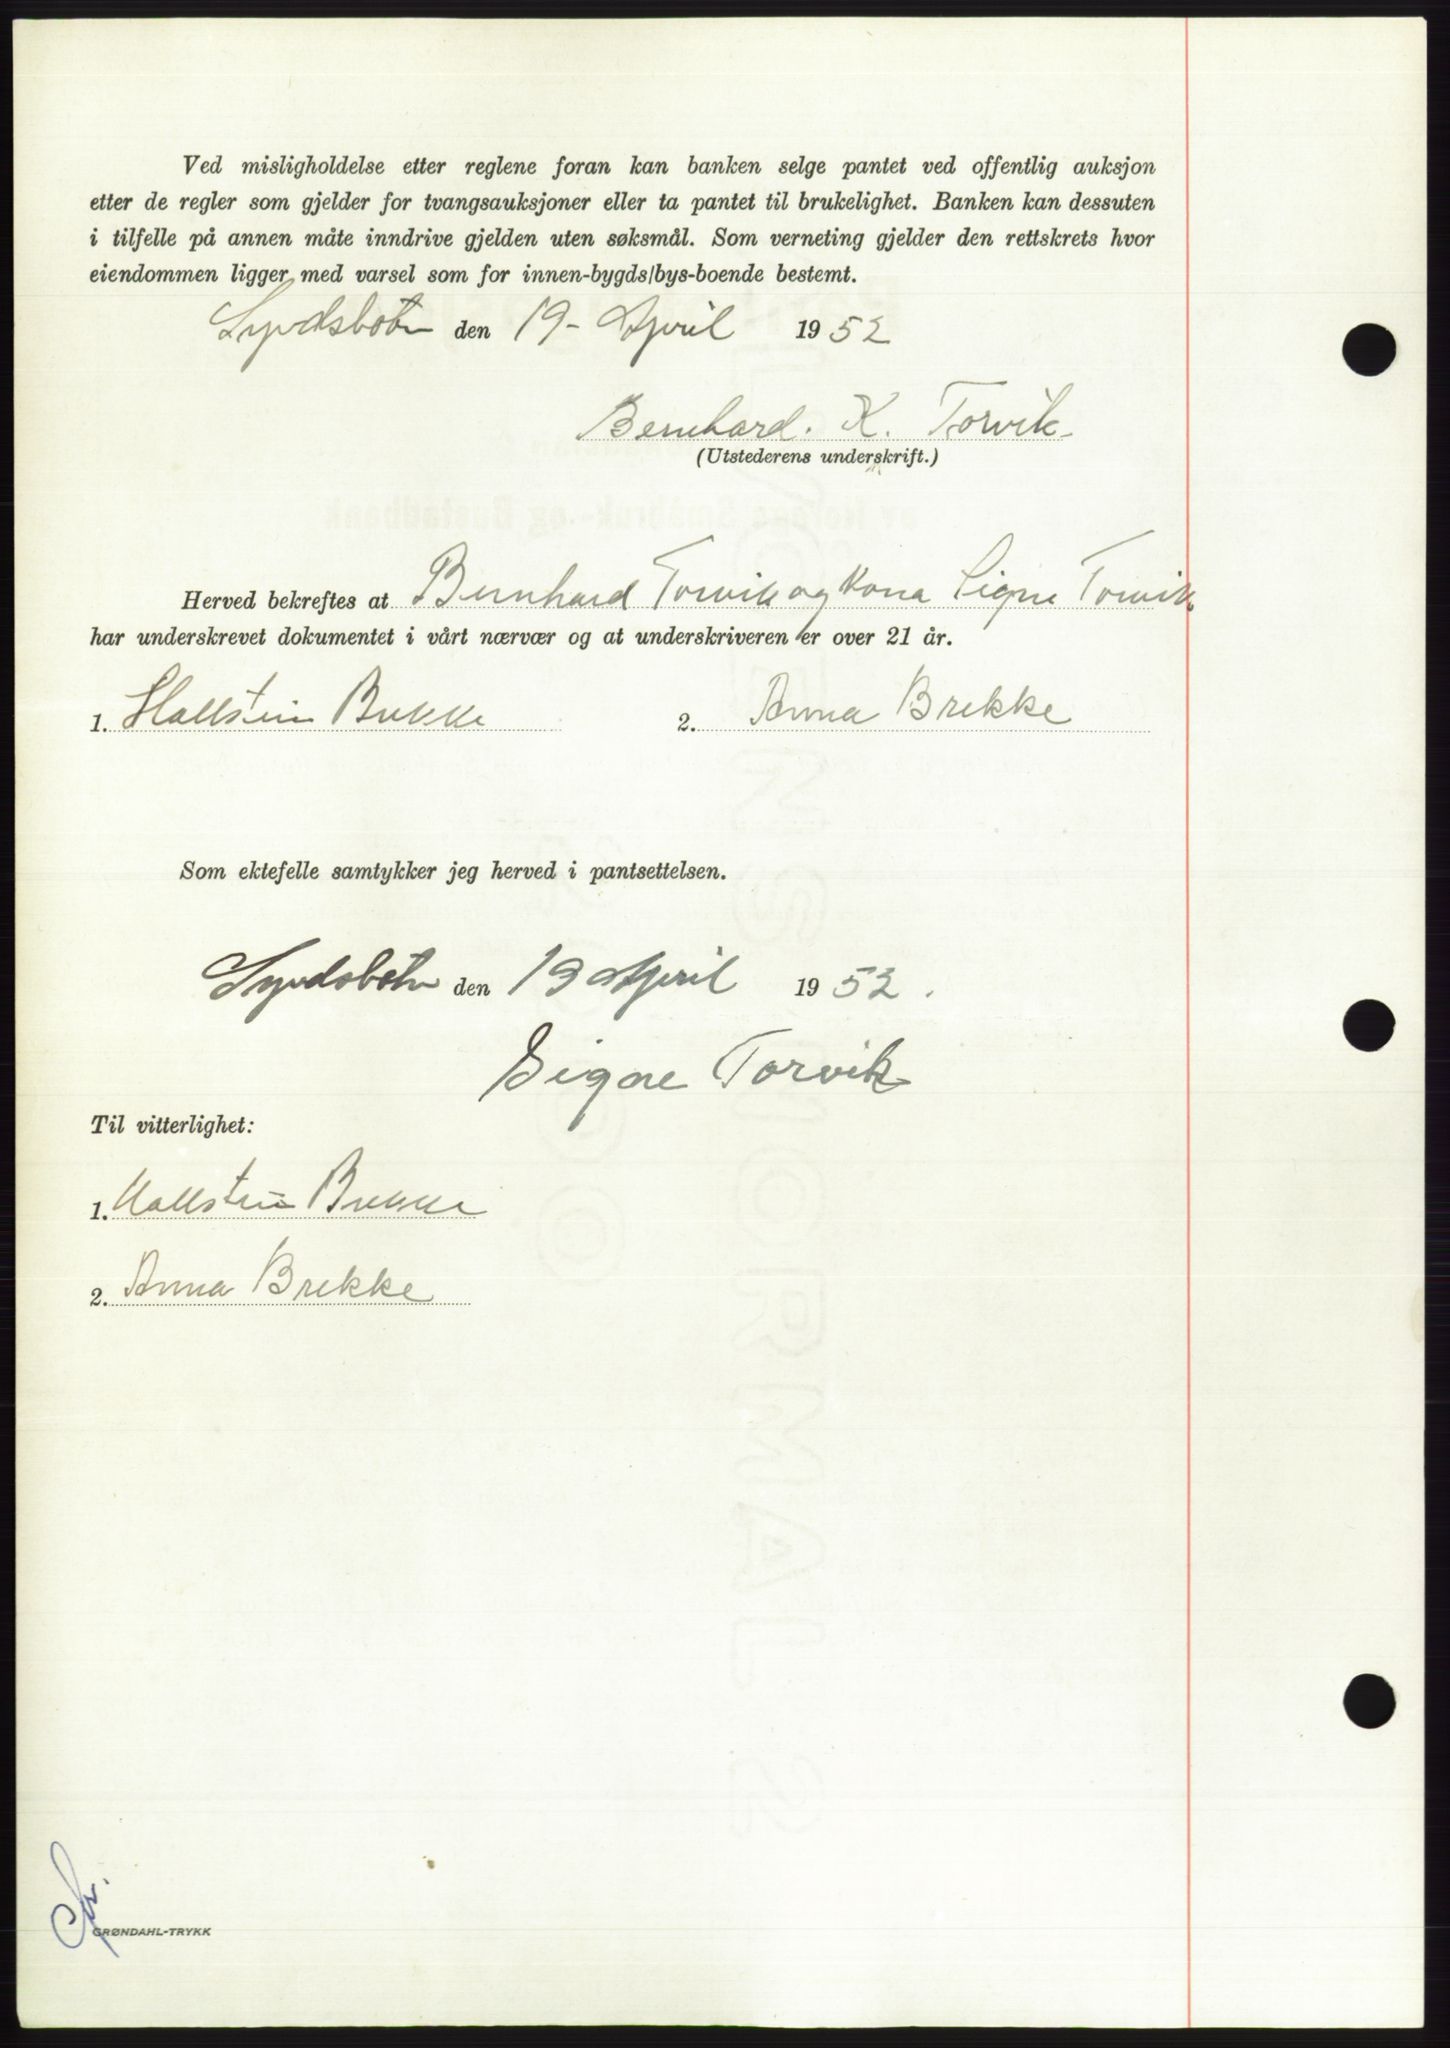 Ved misligholdelse etter reglene foran kan banken selge pantet ved offentlig auksjon
etter de regler som gjelder for tvangsauksjoner eller ta pantet til brukelighet. Banken kan dessuten
i tilfelle på annen måte inndrive gjelden uten søksmål. Som verneting gjelder den rettskrets hvor
eiendommen ligger med varsel som for innen-bygds/bys-boende bestemt.
Syvdsbotn den 19- April 1952
Bernhard. K. Torvik
(Utstederens underskrift.)
Herved bekreftes at Bernhard Torvik og kona Signe Torvik
har underskrevet dokumentet i vårt nærvær og at underskriveren er over 21 år.
1. Hallstein Brekke 2. Anna Brekke
Som ektefelle samtykker jeg herved i pantsettelsen.
Syvdsbotn den 19 April 1952.
Signe Torvik
Til vitterlighet:
1. Hallstein Brekke
2. Anna Brekke
GRØNDAHL-TRYKK